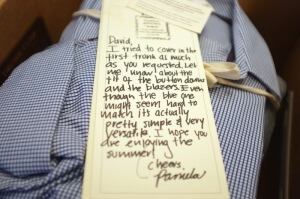 David,
I tried to cover in the
first trunk as much
as you requested. Let
me know about the
fit of the button downs
and the blazers. Even
though the blue one
might seem hard to
match its actually
pretty simple & very
versatile. I hope you
are enjoying the
summer!
Cheers,
Pamela